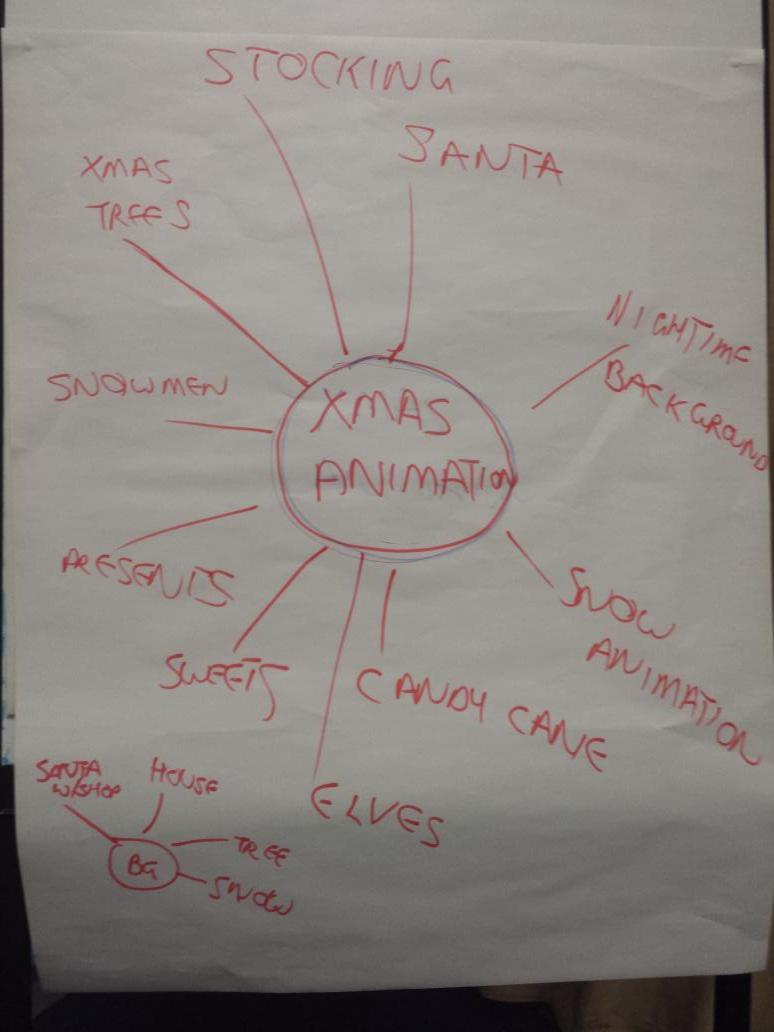 STOCKING
SANTA
XMAS
TREES
NIGHTIME
BACKGROUND
SNOWMEN
XMAS
ANIMATION
PRESENTS
SNOW
ANIMATION
SWEETS
CANDY CANE
ELVES
SANTA
W/SHOP
HOUSE
TREE
BG
SNOW